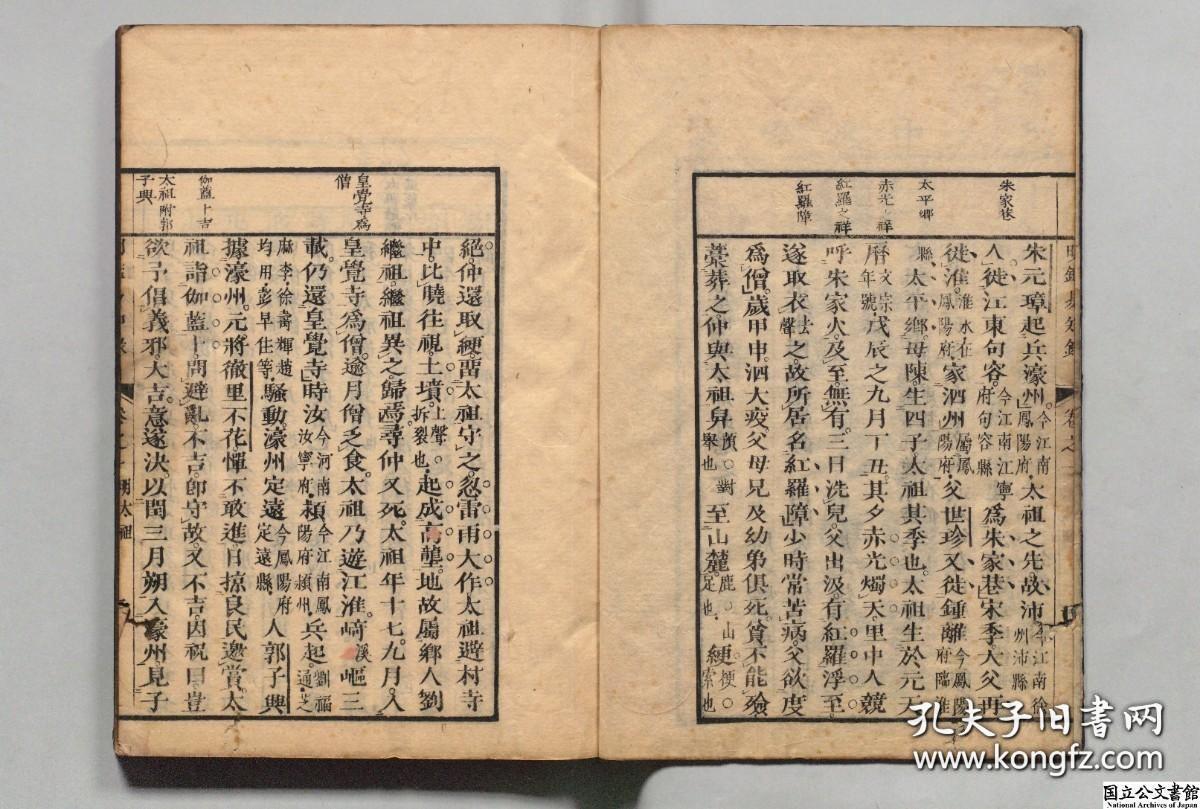 朱家巷
太平鄉
赤光之祥
紅羅之祥
紅羅障
明鑑易知錄 卷之一
朱元璋起兵濠州。今江南鳳陽府。太祖之先故沛今江南徐州沛縣
人。徙江東句容。今江南江寧府句容縣爲朱家巷。宋季大父再
徙淮。淮水在鳳陽府。家泗州屬鳳陽府。父世珍又徙鍾離今鳳陽府臨淮
縣太平鄉。母陳。生四子。太祖其季也。太祖生於元天
曆文宗年號。戊辰之九月丁丑。其夕赤光燭天。里中人競
呼朱家火。及至。無有。三日洗兒。父出汲。有紅羅浮至。
遂取衣去聲之。故所居名紅羅障。少時常苦病。父欲度
爲僧。歲甲申。泗大疫。父母兄及幼弟俱死。貧不能殮
藁葬之。仲與太祖舁黃。對舉也至山麓鹿。山足也。綆梗。索也
皇覺寺爲僧
伽藍卜吉
太祖附郭子興
絕。仲還取綆。留太祖守之。忽雷雨大作。太祖避村寺
中。比曉往視。土墳上聲。拆裂也。起成高壟。地故屬鄉人劉
繼祖。繼祖異之。歸焉。尋仲又死。太祖年十七。九月。入
皇覺寺爲僧。逾月。僧乏食。太祖乃遊江淮。崎溪嶇三
載。仍還皇覺寺。時汝今河南汝寧府潁今江南鳳陽府潁州。兵起。劉福通芝
麻李徐壽輝趙均用彭早住等騷動濠州。定遠今鳳陽府定遠縣。人郭子興
據濠州。元將徹里不花憚不敢進。日掠良民邀賞。太
祖詣伽藍卜問。避亂。不吉。卽守故。又不吉。因祝曰。豈
欲予倡義邪。大吉。意遂決。以閏三月朔入濠州。見子
太祖
孔夫子旧书网
www.kongfz.com
国立公文書館
National Archives of Japan